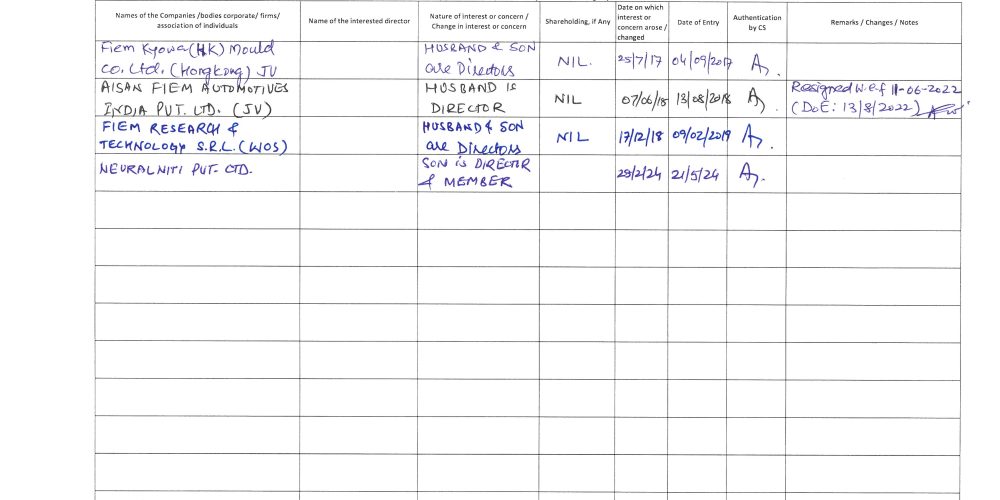 Names of the Companies /bodies corporate/ firms/ association of individuals
Name of the interested director
Nature of interest or concern / Change in interest or concern
Shareholding, if Any
Date on which interest or concern arose / changed
Date of Entry
Authentication by CS
Remarks / Changes / Notes
Fiem Kyowa (HK) Mould HUSBAND & SON NIL. 25/7/17 04/09/2017
Co. Ltd. (Hongkong) JV are Directors
AISAN FIEM AUTOMOTIVES HUSBAND IS NIL 07/06/18 13/08/2018 Resigned w.e.f 11-06-2022
INDIA PVT. LTD. (JV) DIRECTOR (DOE: 13/8/2022)
FIEM RESEARCH & HUSBAND & SON NIL 17/12/18 09/02/2019
TECHNOLOGY S.R.L. (WOS) are Directors
NEURALNITI PVT. LTD. SON IS DIRECTOR 29/2/24 21/5/24
& MEMBER